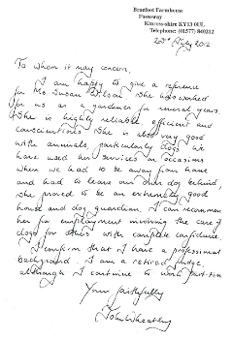 Brackot Farmhouse
Fossoway
Kinross-shire KY13 0UL
Telephone: (01577) 840212
20th July 2012
To whom it may concern,
I am happy to give a reference
for Ms. Susan Wilson. She has worked
for us as a gardener for several years.
She is highly reliable, efficient and
conscientious. She is also very good
with animals, particularly dogs. We
have used her services on occasions
when we had to be away from home
and had to leave our own dog behind,
she proved to be an extremely good
house and dog guardian. I can recommend
her for employment involving the care of
dogs for others with complete confidence.
I confirm that I have a professional
background. I am a retired judge,
although I continue to work part-time
Yours faithfully
John Wheatley